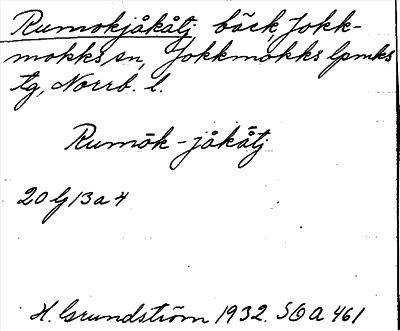 Rumokjåkåtj, bäck, Jokk-
mokks sn, Jokkmokks lpmks
tg, Norrb. l.
Rumōk-jåkå̄tj
20 J 13 a 4
H. Grundström 1932. SOA 461